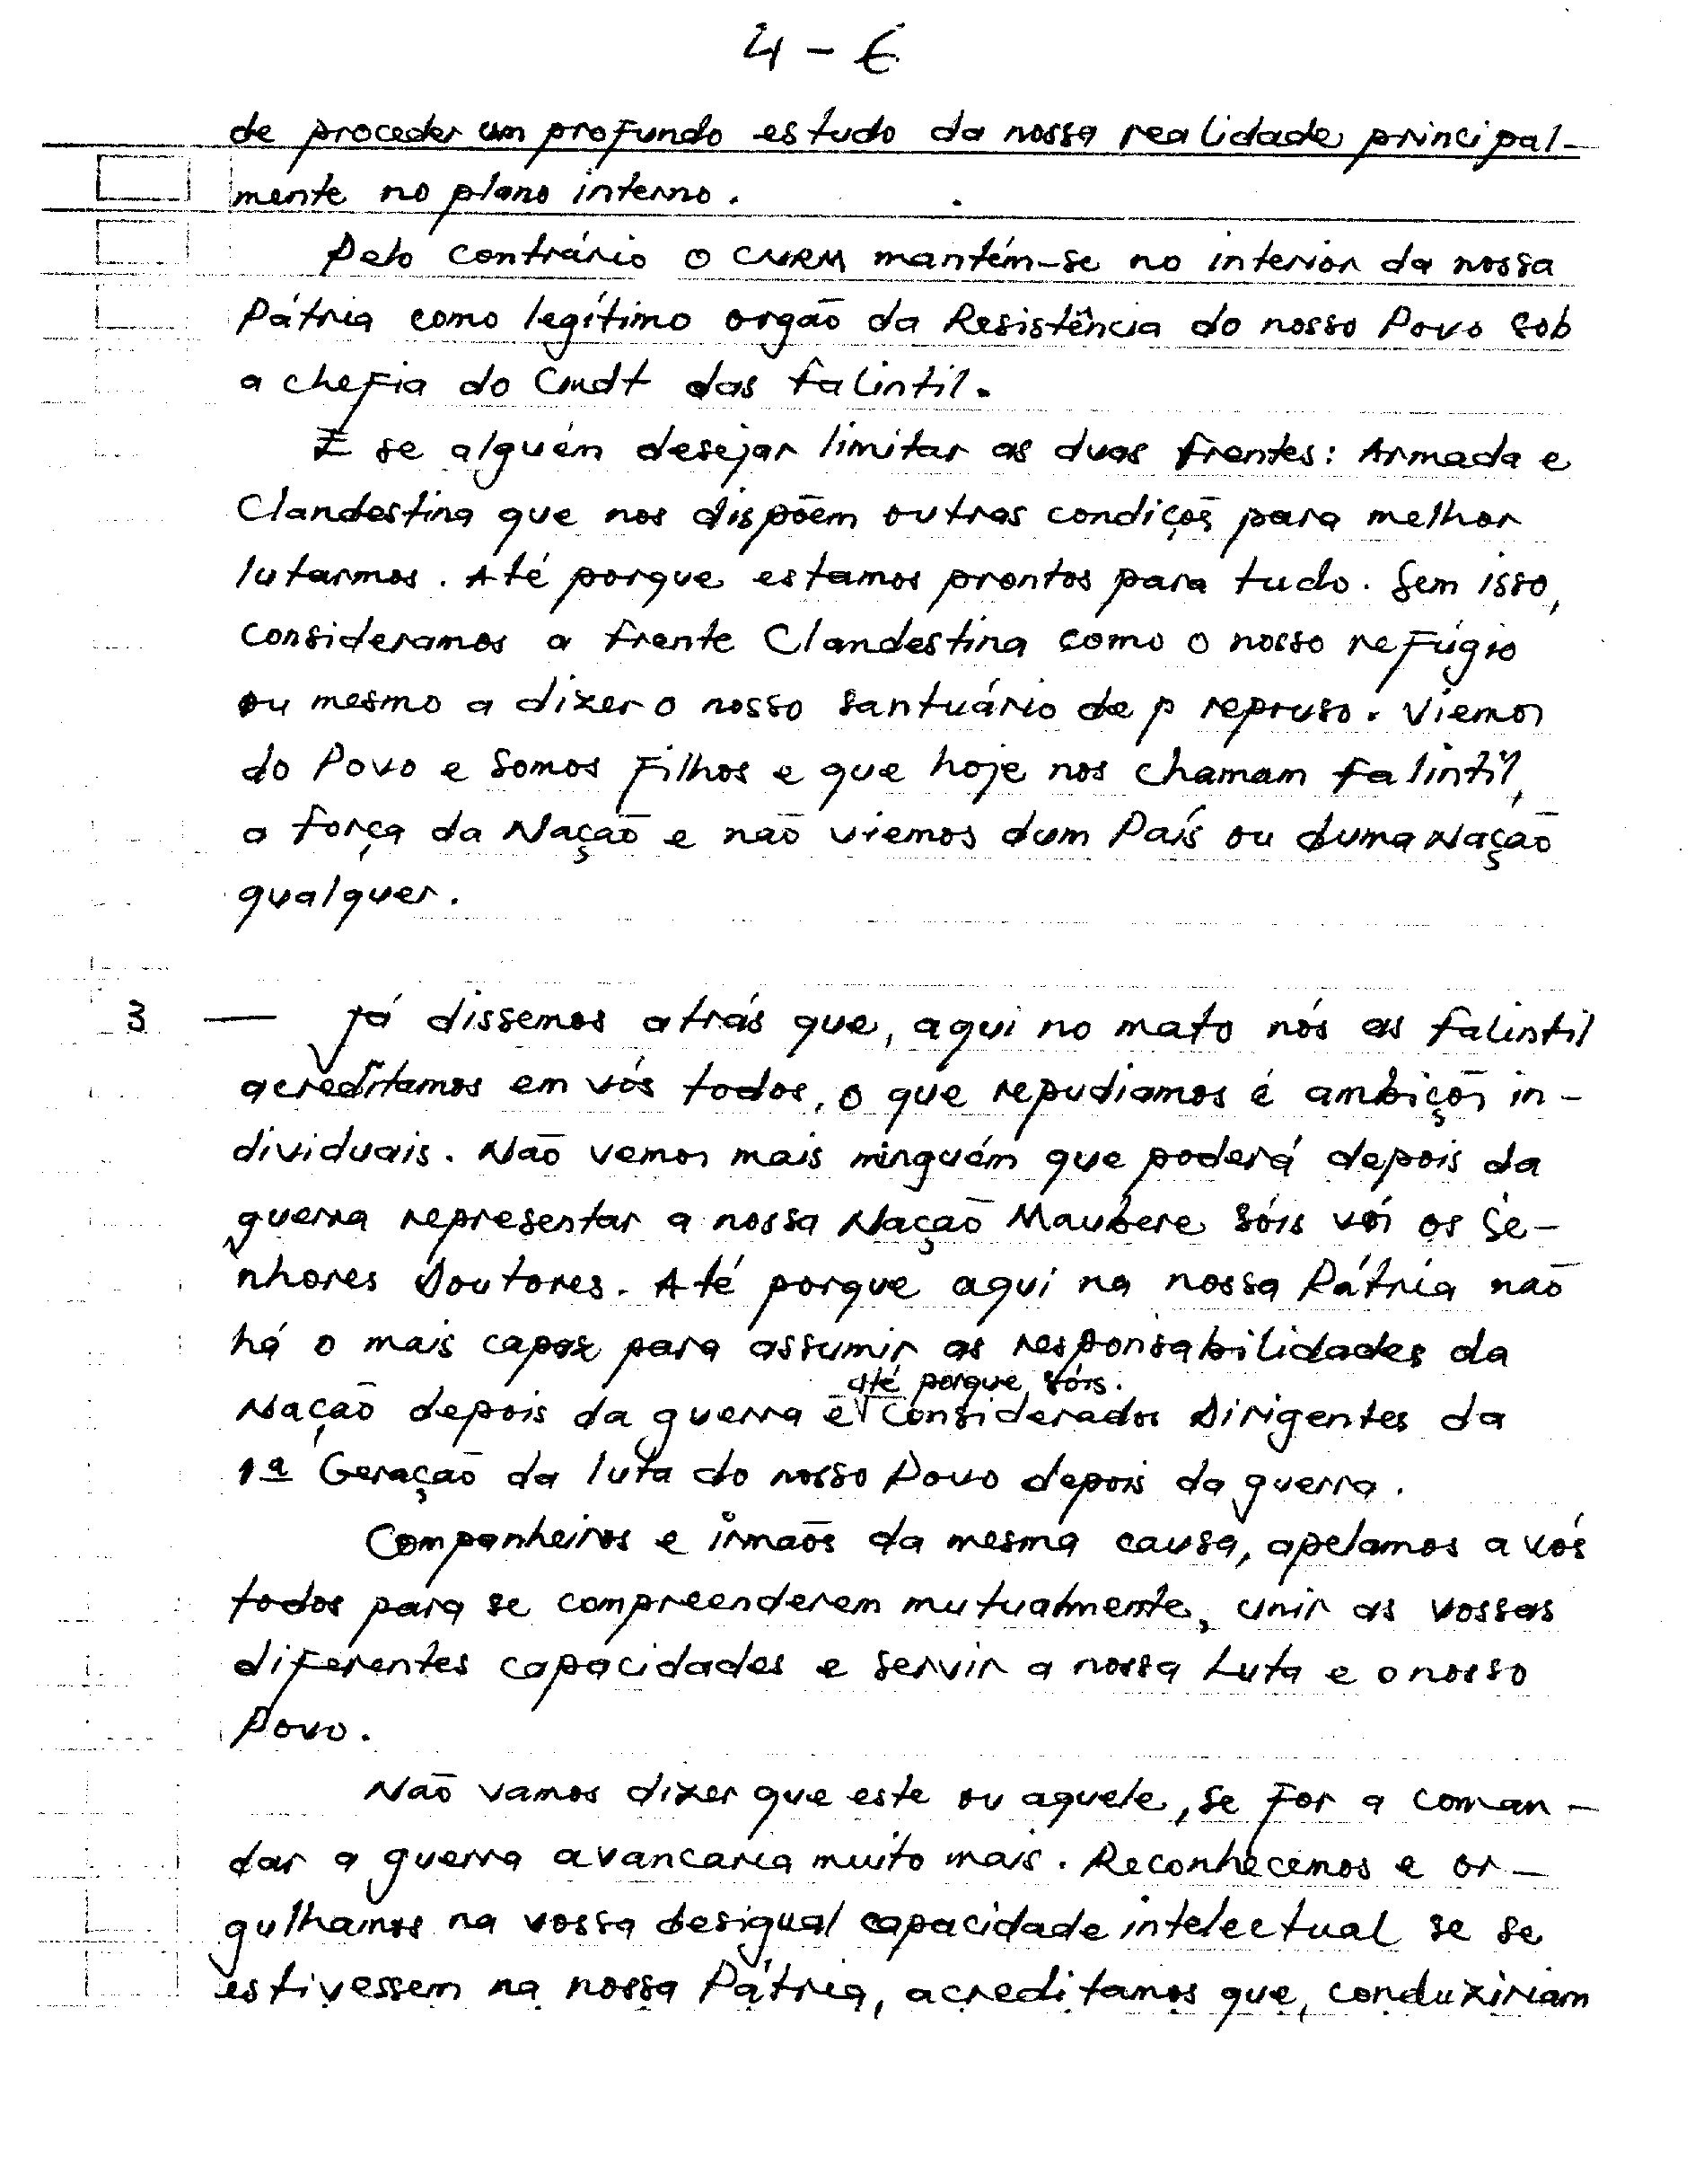 4 - E
de proceder um profundo estudo da nossa realidade principal-
mente no plano interno.
Pelo contrário o CNRM mantém-se no interior da nossa
Pátria como legítimo orgaõ da Resistência do nosso Povo sob
a chefia do Cmdt das falintil.
E se alguém desejar limitar as duas frentes: Armada e
Clandestina que nos dispõem outras condiçoẽs para melhor
lutarmos. Até porque estamos prontos para tudo. Sem isso,
consideramos a frente Clandestina como o nosso refúgio
ou mesmo a dizer o nosso santuário de p repruso. Viemos
do Povo e somos Filhos e que hoje nos chamam falintil,
a força da Naçaõ e naõ viemos dum País ou duma Naçaõ
qualquer.
3 — Já dissemos atrás que, aqui no mato nós as falintil
acreditamos em vós todos, o que repudiamos é ambiçoẽs in-
dividuais. Naõ vemos mais ninguém que poderá depois da
guerra representar a nossa Naçaõ Maubere sóis vós os Se-
nhores Doutores. Até porque aqui na nossa Pátria naõ
há o mais capaz para assumir as responsabilidades da
até porque sóis.
Naçaõ depois da guerra e considerados Dirigentes da
1ª Geraçaõ da luta do nosso Povo depois da guerra.
Companheiros e irmaõs da mesma causa, apelamos a vós
todos para se compreenderem mutualmente, unir as vossas
diferentes capacidades e servir a nossa Luta e o nosso
Povo.
Naõ vamos dizer que este ou aquele, se for a coman-
dar a guerra avancaria muito mais. Reconhecemos e or-
gulhamos na vossa desigual capacidade intelectual se se
estivessem na nossa Pátria, acreditamos que, conduziriam